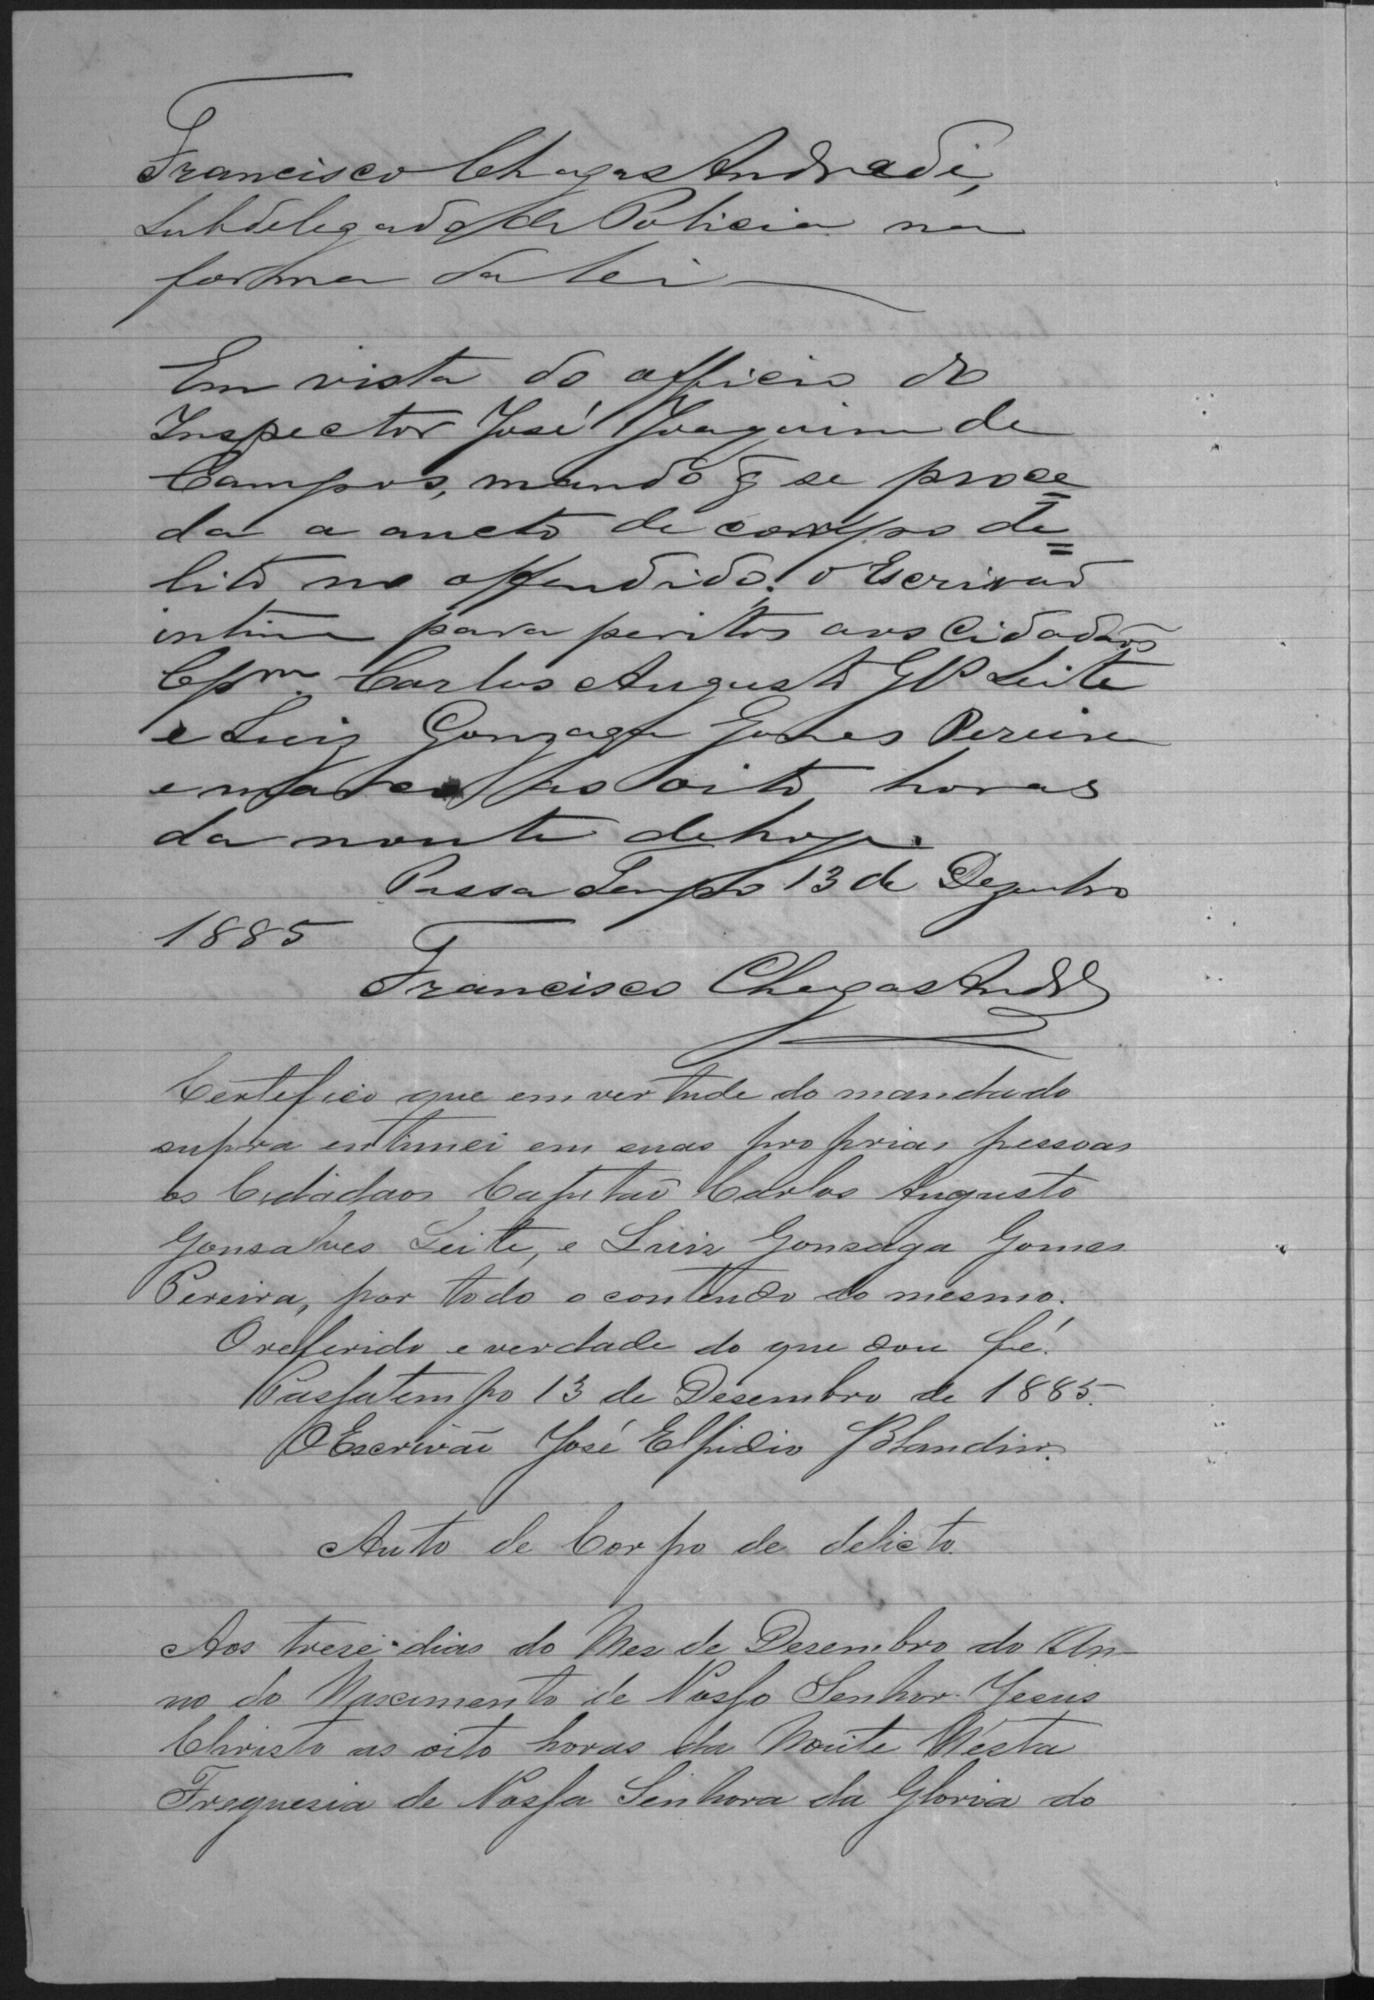 Francisco Chagas Andrade,
Subdelegado de Policia na
forma da lei
Em vista do officio do
Inspector José Joaquim de
Campos, mando q̃ se proce=
da a aucto de corpo de=
lito no offendido. o Escrivaõ
intime para peritos aos Cidadaõs
Cpm. Carlos Augusto Glz Leite
e Luiz Gonzaga Gomes Pereira
e marco as oito horas
da noute de hoje.
Passa Tempo 13 de Dezembro
1885
Francisco Chagas Andr
Certefico que em vertude do mandado
supra entimei em suas proprias pessoas
os Cidadaos Capitaõ Carlos Augusto
Gonsalves Leite, e Luiz Gonzaga Gomes
Pereira, por todo o contendo do mesmo.
O referido e verdade do que dou fé.
Passatempo 13 de Desembro de 1885.
O Escrivaõ José Elpidio Blandin.
Auto de Corpo de delicto.
Aos trese dias do Mez de Desembro do An-
no do Nascimento de Nosso Senhor Jesus
Christo as oito horas da Noute Nesta
Freguesia de Nossa Senhora da Gloria do